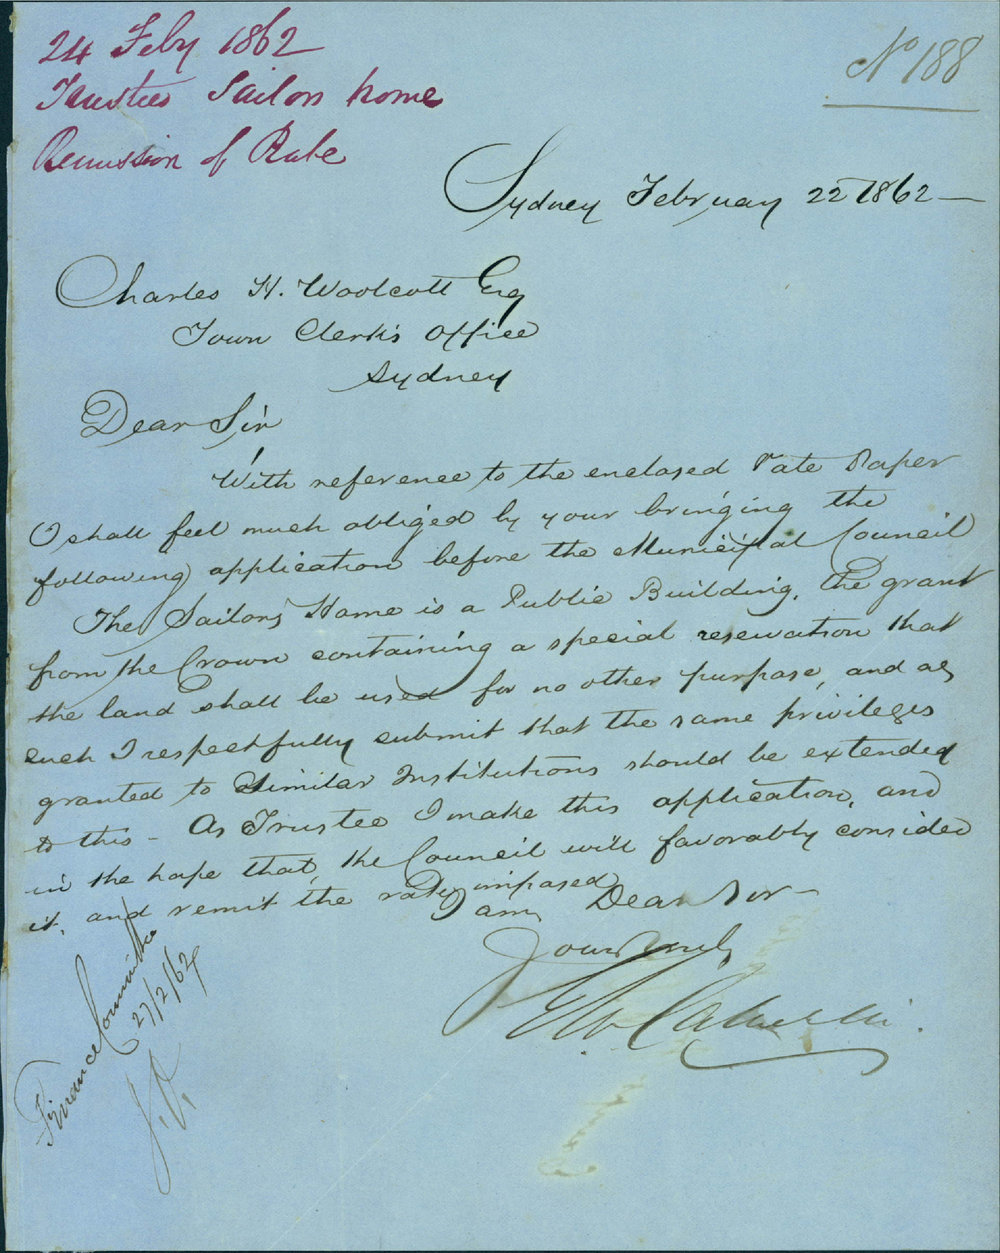 24 Feby 1862
Trustees Sailors home
Remission of Rate
No 188
Sydney February 22 1862
Charles H. Woolcott Esq
Town Clerk's Office
Sydney
Dear Sir
With reference to the enclosed rate Paper
I shall feel much obliged by your bringing the
following application before the Municipal Council
The Sailors Home is a Public Building, the grant
from the Crown containing a special reservation that
the land shall be used for no other purpose, and as
such I respectfully submit that the same privileges
granted to Similar Institutions should be extended
to this - As Trustee I make this application, and
in the hope that the Council will favorably consider
it, and remit the rate imposed
I am, Dear Sir
Yours truly
Finance Committee
27/2/62